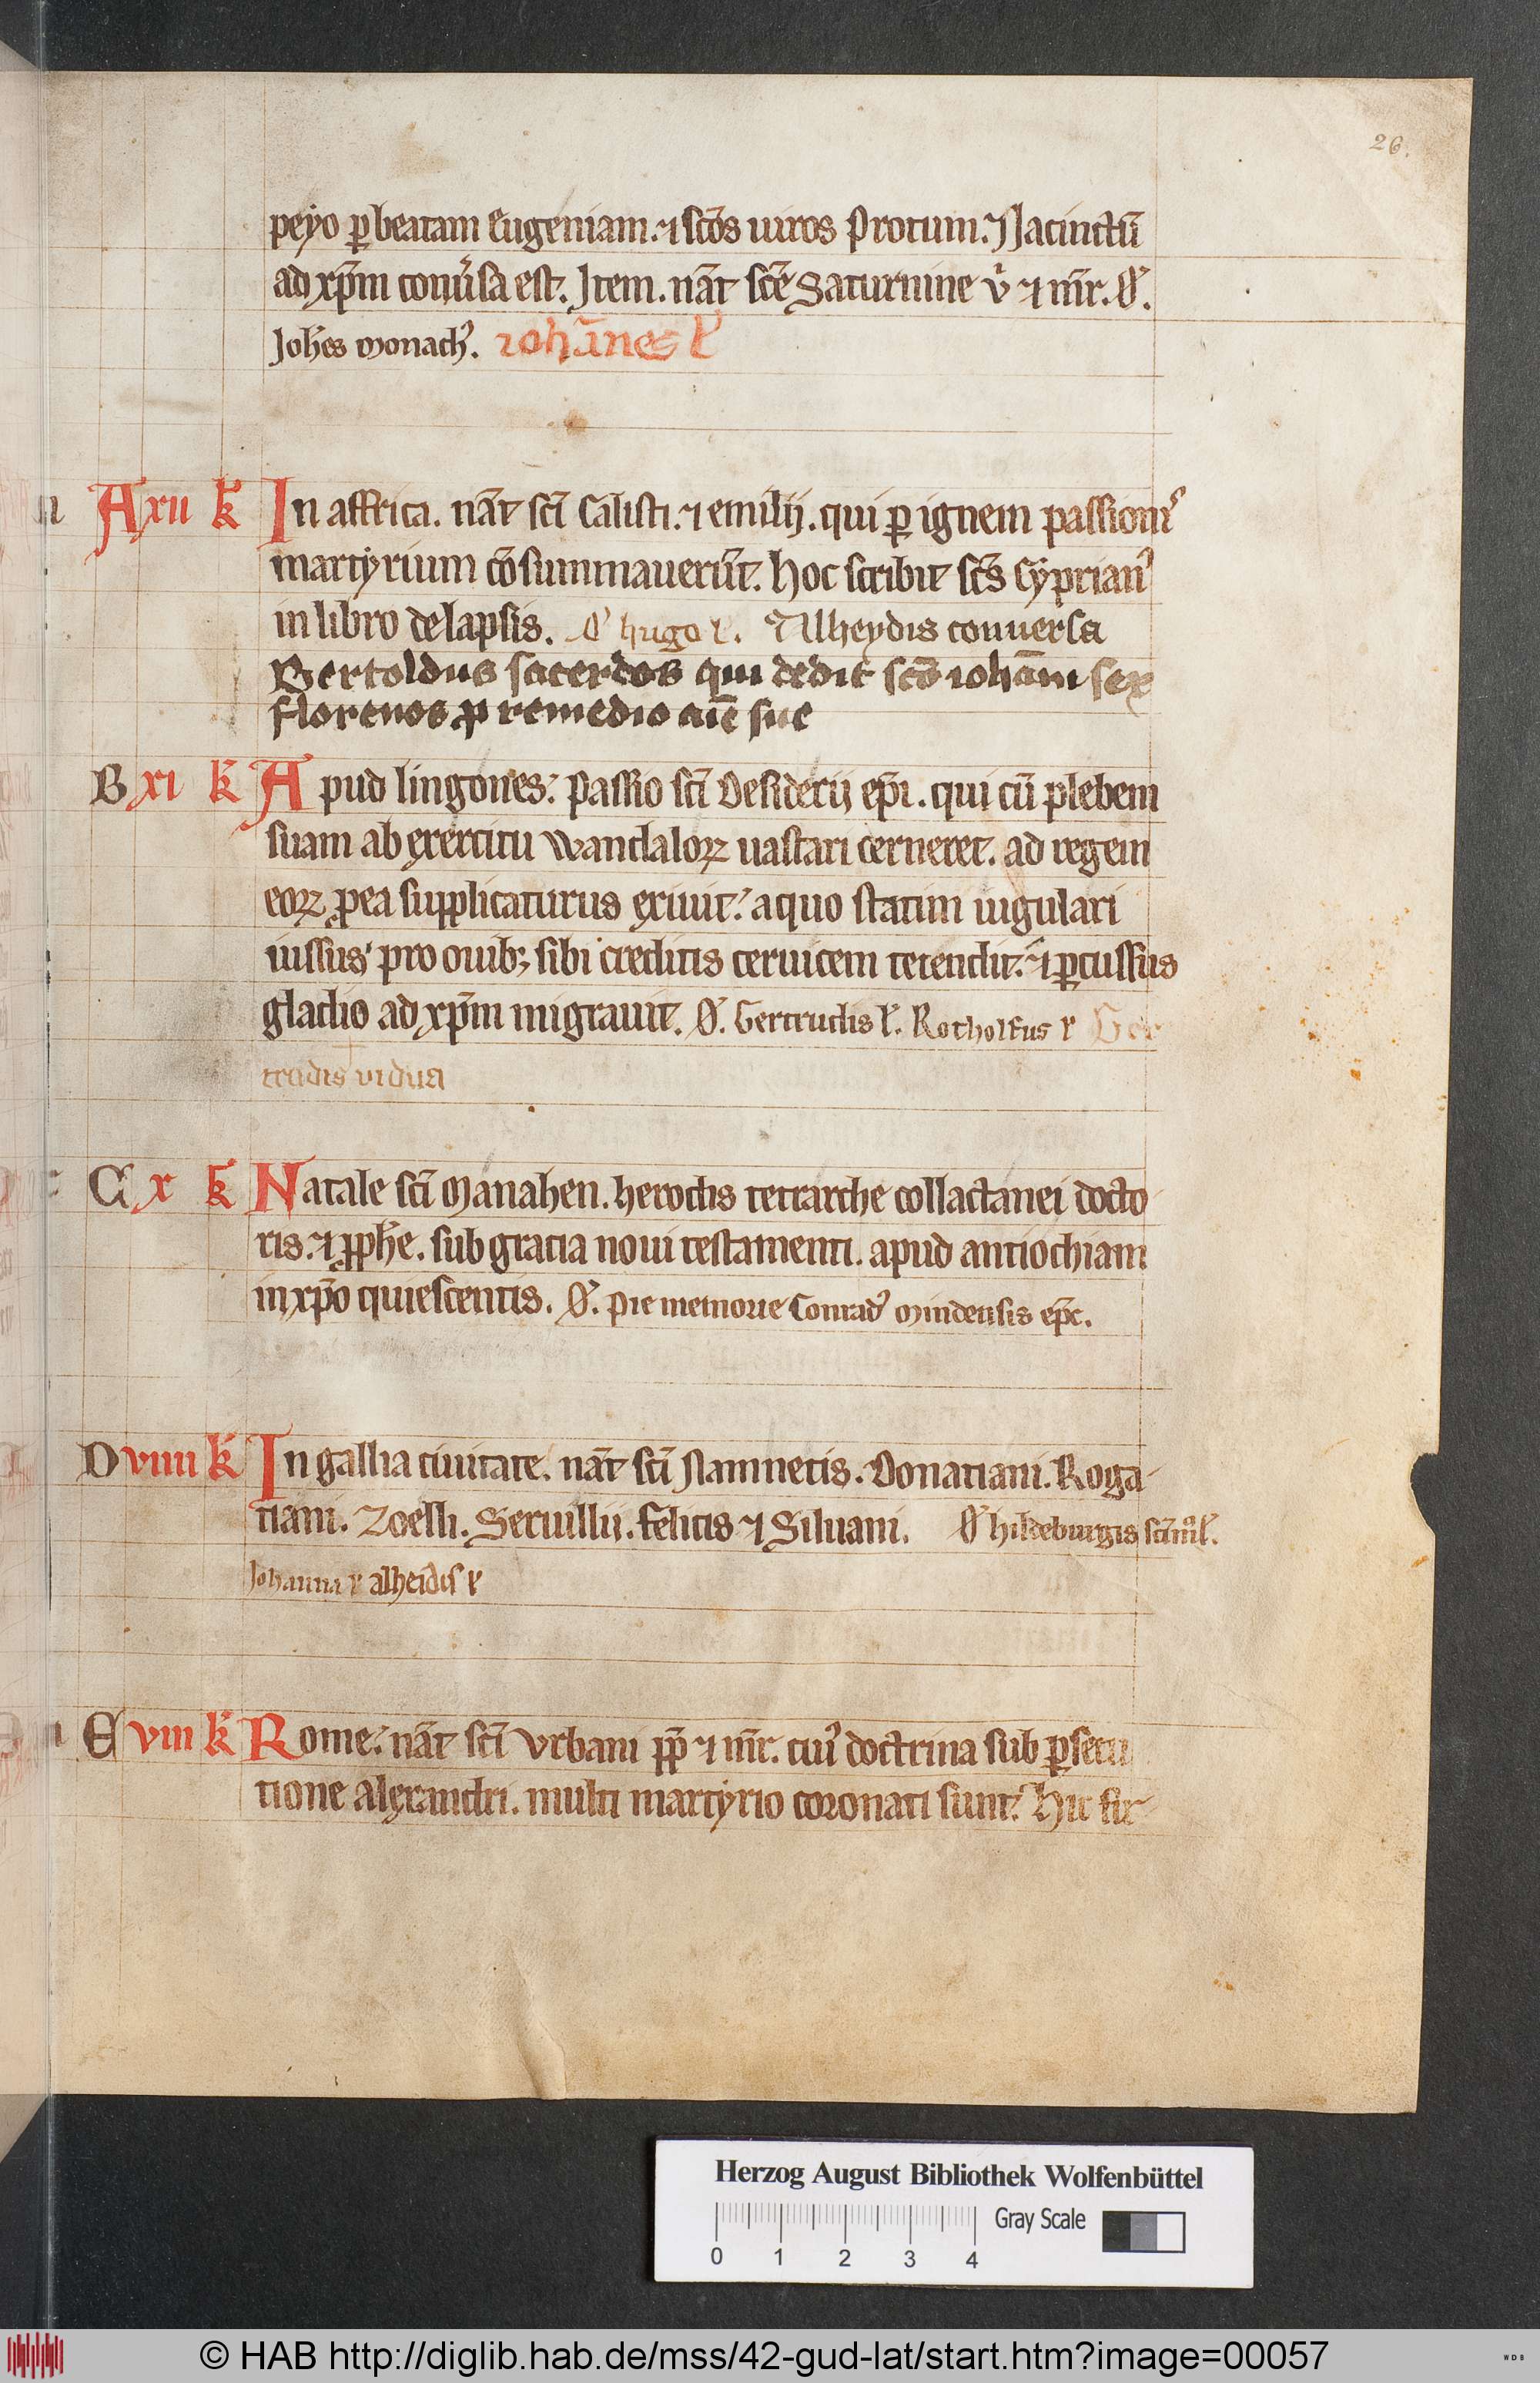 26.
peyo ꝑ beatam Eugeniam. ⁊ sc̄os uiros Protum. ⁊ Jacinctū
ad xp̄m conu͛sa est. Jtem. nāt sc̄e Saturnine v̓ ⁊ mr̄. O᷒.
Joh̄es monach᷒. Iohānes ł
A xii k̄ In affrica. nāt sc̄i Calisti. ⁊ emilij. qui ꝑ ignem passionis
martyrium cōsummauerūt. hoc scribit sc̄s Cyprian᷒
in libro de lapsis. O᷒ hugo ł. Alheydis conuersa
Bertoldus sacerdos qui dedit scō iohāni sex
florenos ꝓ remedio aīe sue
B xi k̄ Apud lingones: passio sc̄i Desiderij ep̄i. qui cū plebem
suam ab exercitu wandaloꝝ uastari cerneret. ad regem
eoꝝ ꝓ ea supplicaturus exiuit: a quo statim iugulari
iussus pro ouib; sibi creditis ceruicem tetendit. ⁊ ꝑcussus
gladio ad xp̄m migrauit. O᷒. Gertrudis ł. Rotholfus ł Ger
trudis vidua
C x k̄ Natale sc̄i Manahen. herodis tetrarche collactanei docto
ris. ⁊ ꝓph̄e. sub gratia noui testamenti. apud antiochiam
in xp̄o quiescentis. O᷒. Pie memorie Conrad᷒ mindensis ep̄c.
D viiii k̄ In gallia ciuitate. nāt sc̄i Namnetis. Donatiani. Roga
tiani. Zoelli. Seruilii. felicis ⁊ Siluani. O᷒ hildeburgis
Johanna ł alheidis ł
E viii k̄ Rome: nāt sc̄i Vrbani pp̄ ⁊ mr̄. cui᷒ doctrina sub ꝑsecu
tione alexandri. multi martyrio coronati sunt. Hic
Herzog August Bibliothek Wolfenbüttel
Gray Scale
0 1 2 3 4
© HAB http://diglib.hab.de/mss/42-gud-lat/start.htm?image=00057
WDB